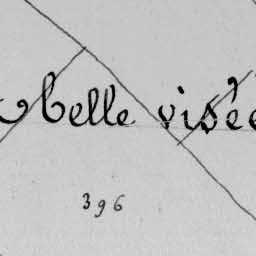 belle visée
396